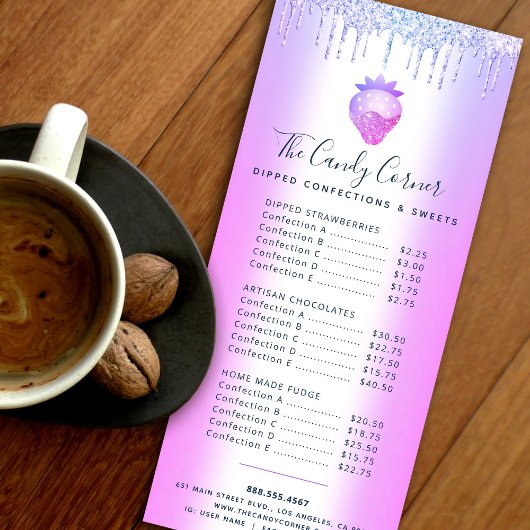 The Candy Corner
DIPPED CONFECTIONS & SWEETS
DIPPED STRAWBERRIES
Confection A ................ $2.25
Confection B ................ $3.00
Confection C ................ $1.50
Confection D ................ $1.75
Confection E ................ $2.75
ARTISAN CHOCOLATES
Confection A ................ $30.50
Confection B ................ $22.75
Confection C ................ $17.50
Confection D ................ $15.75
Confection E ................ $40.50
HOME MADE FUDGE
Confection A ................ $20.50
Confection B ................ $18.75
Confection C ................ $25.50
Confection D ................ $15.75
Confection E ................ $22.75
888.555.4567
651 MAIN STREET BLVD., LOS ANGELES, CA
WWW.THECANDYCORNER
IG: USER NAME |